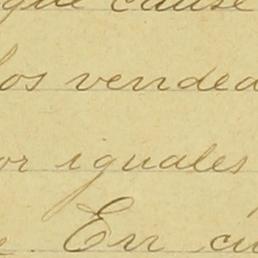 que cause
los vended
or iguales
En cu